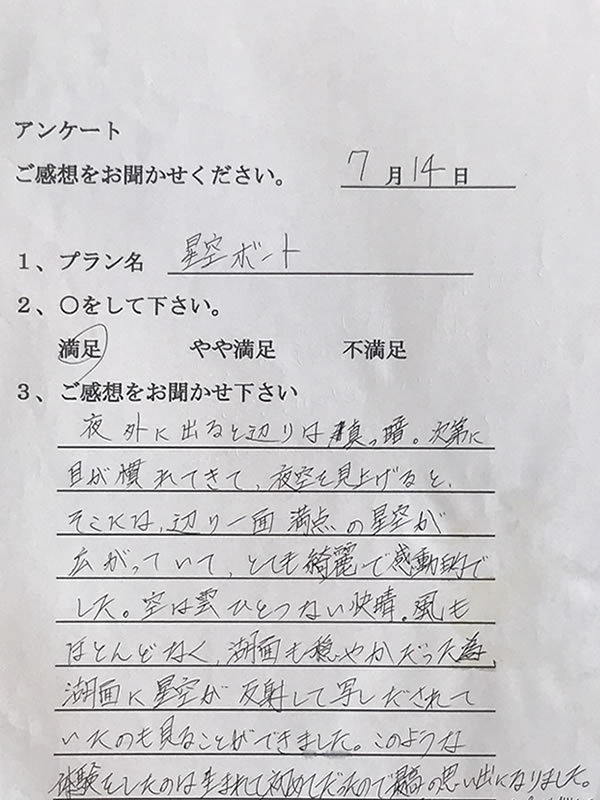 アンケート
ご感想をお聞かせください。 7月14日
1、プラン名 星空ボート
2、〇をして下さい。
満足 やや満足 不満足
3、ご感想をお聞かせ下さい
夜外に出ると辺りは真っ暗。次第に
目が慣れてきて、夜空を見上げると、
そこには、辺り一面満点の星空が
広がっていて、とても綺麗で感動的で
した。空は雲ひとつない快晴。風も
ほとんどなく、湖面も穏やかだった為、
湖面に星空が反射して写しだされて
いたのも見ることができました。このような
体験をしたのは生まれて初めてだったので最高の思い出になりました。